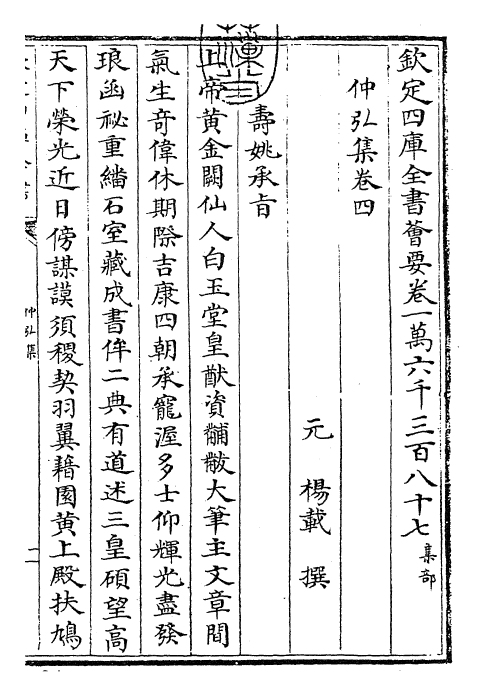 欽定四庫全書薈要卷一萬六千三百八十七集部
仲弘集卷四
元　楊載　撰
壽姚承旨
上帝黃金闕仙人白玉堂皇猷資黼黻大筆主文章間
氣生竒偉休期際吉康四朝承寵渥多士仰輝光盡發
琅函祕重繙石室藏成書侔二典有道述三皇碩望髙
天下榮光近日傍謀謨須稷契羽翼藉園黄上殿扶鳩
仲弘集
一